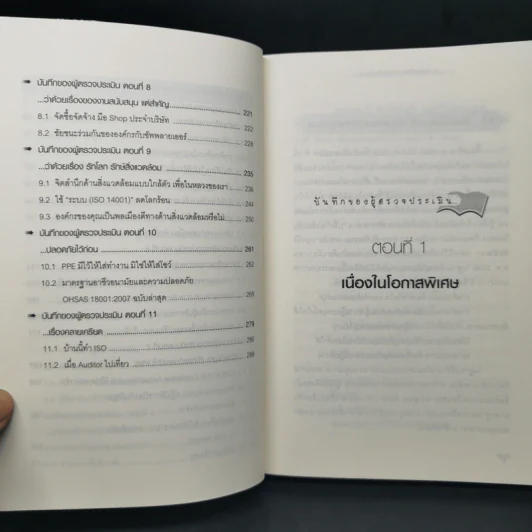 บันทึกของผู้ตรวจประเมิน ตอนที่ 8
...ว่าด้วยเรื่องของงานสนับสนุน แต่สำคัญ 221
8.1 จัดซื้อจัดจ้าง มือ Shop ประจำบริษัท 222
8.2 ชัยชนะร่วมกันขององค์กรกับซัพพลายเออร์ 228
บันทึกของผู้ตรวจประเมิน ตอนที่ 9
...ว่าด้วยเรื่อง รักโลก รักษ์สิ่งแวดล้อม 235
9.1 จิตสำนึกด้านสิ่งแวดล้อมแบบใกล้ตัว เพื่อในหลวงของเรา 236
9.2 ใช้ "ระบบ (ISO 14001)" ลดโลกร้อน 244
9.3 องค์กรของคุณเป็นพลเมืองดีทางด้านสิ่งแวดล้อมหรือไม่ 250
บันทึกของผู้ตรวจประเมิน ตอนที่ 10
...ปลอดภัยไว้ก่อน 261
10.1 PPE มีไว้ให้ใส่ทำงาน มิใช่ให้ใส่โชว์
10.2 มาตรฐานอาชีวอนามัยและความปลอดภัย
OHSAS 18001:2007 ฉบับล่าสุด 269
บันทึกของผู้ตรวจประเมิน ตอนที่ 11
...เรื่องคลายเครียด 279
11.1 บ้านนี้ทำ ISO
11.2 เมื่อ Auditor ไปเที่ยว
บันทึกของผู้ตรวจประเมิน
ตอนที่ 1
เนื่องในโอกาสพิเศษ